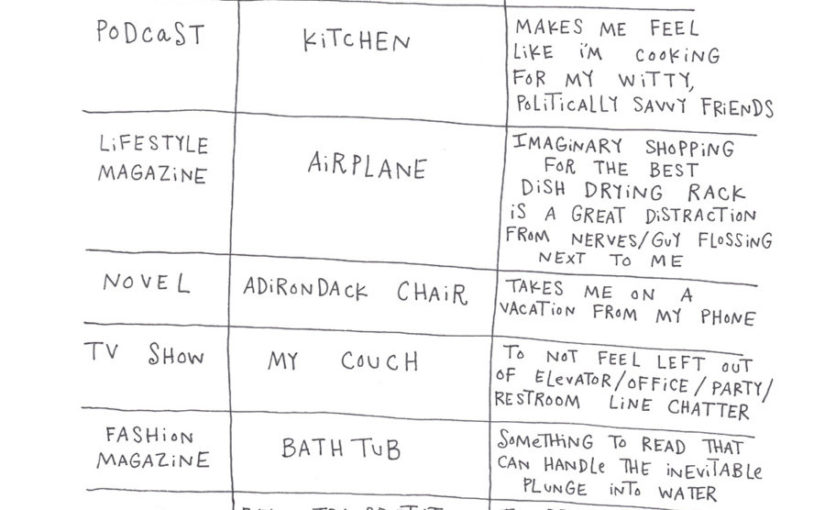 PODCAST
KITCHEN
MAKES ME FEEL
LIKE I'M COOKING
FOR MY WITTY,
POLITICALLY SAVVY FRIENDS
LIFESTYLE
MAGAZINE
AIRPLANE
IMAGINARY SHOPPING
FOR THE BEST
DISH DRYING RACK
IS A GREAT DISTRACTION
FROM NERVES/GUY FLOSSING
NEXT TO ME
NOVEL
ADIRONDACK CHAIR
TAKES ME ON A
VACATION FROM MY PHONE
TV SHOW
MY COUCH
TO NOT FEEL LEFT OUT
OF ELEVATOR/OFFICE/PARTY/
RESTROOM LINE CHATTER
FASHION
MAGAZINE
BATH TUB
SOMETHING TO READ THAT
CAN HANDLE THE INEVITABLE
PLUNGE INTO WATER